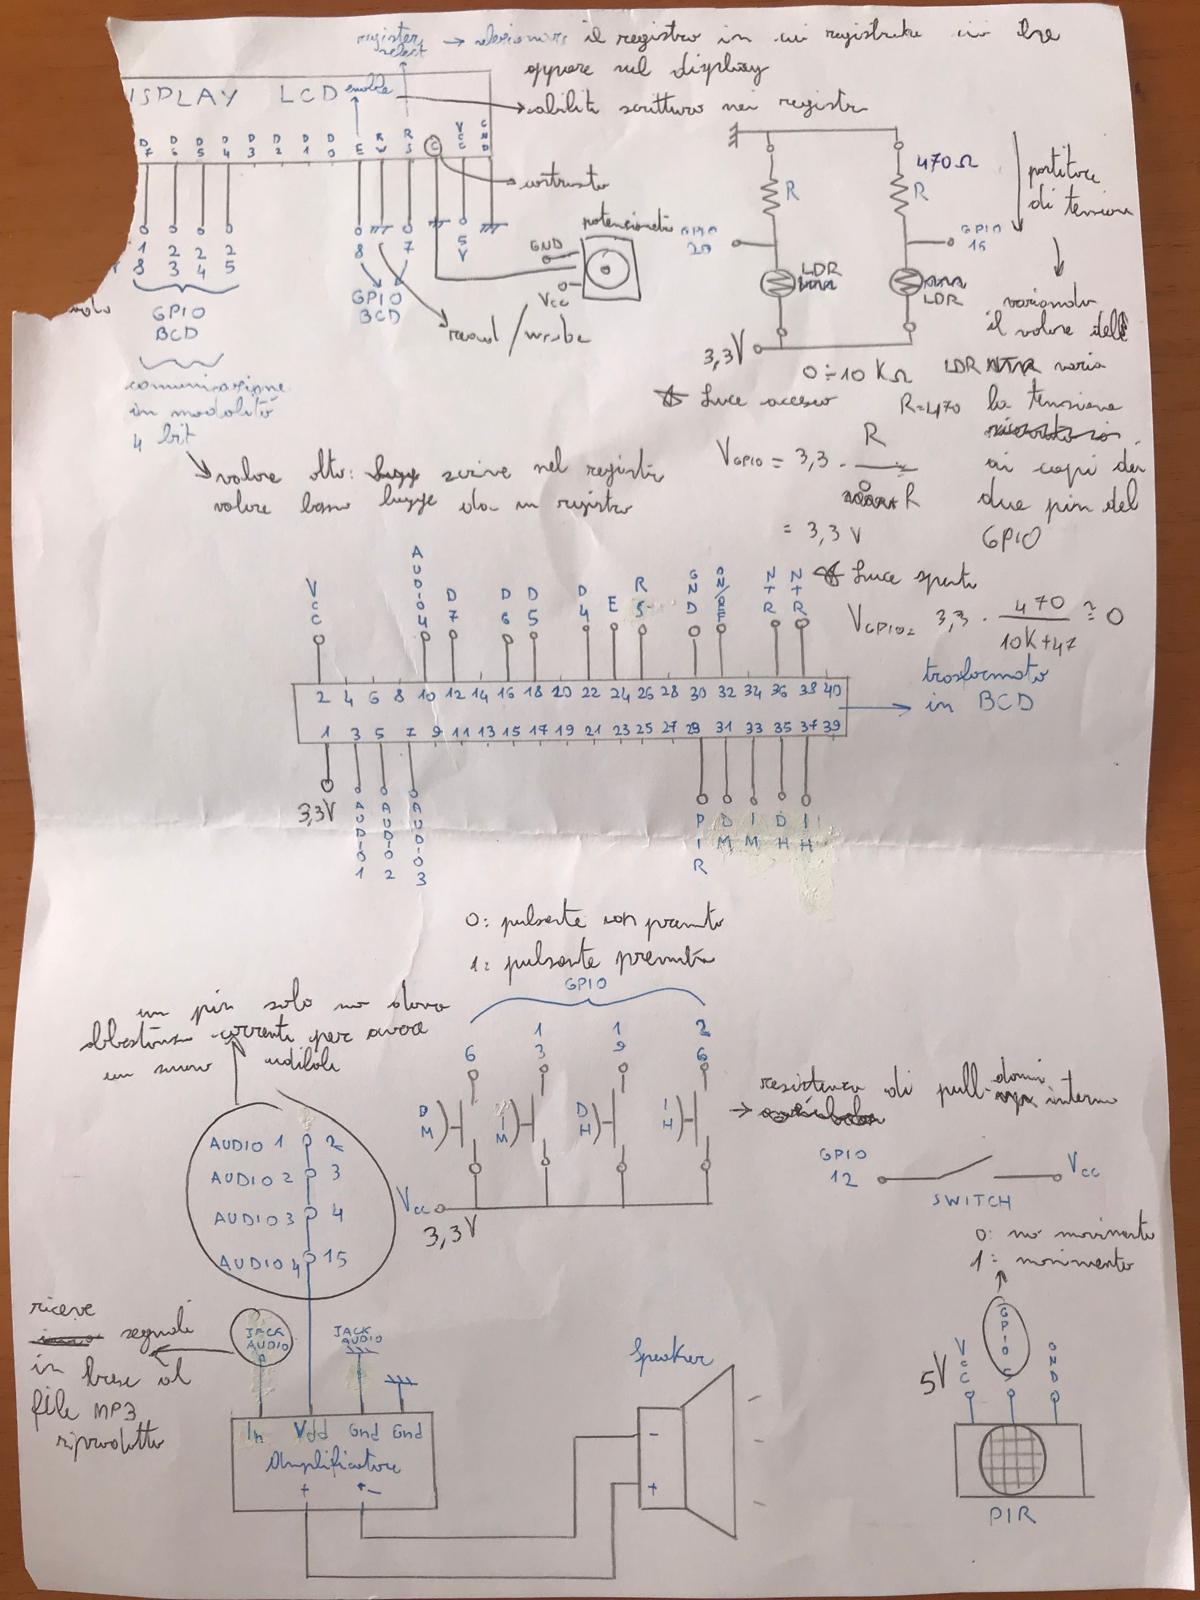 register select → selezionare il registro in cui registrare ciò che
appare sul display
DISPLAY LCD enable → abilita scrittura nei registri
D7 D6 D5 D4 D3 D2 D1 D0 E RW RS C VCC GND
contrasto
18 23 24 25
8 7 5V
GPIO
BCD
GPIO
BCD
read/write
GND
Vcc
comunicazione
in modalità
4 bit
valore alto: scrive nel registri
valore basso legge da un registro
R
470Ω
R
GPIO
20
GPIO
16
LDR
LDR
3,3V
0÷10 KΩ
partitore
di tensione
variando
il valore dell
LDR varia
la tensione
ai capi dei
due pin del
GPIO
Luce accesa
R=470
VGPIO = 3,3 · R
R
= 3,3 V
Luce spenta
VGPIO = 3,3 · 470 ≅ 0
10K+47
VCC AUDIO4 D7 D6 D5 D4 E RS GND ON/OFF NTR NTR
2 4 6 8 10 12 14 16 18 20 22 24 26 28 30 32 34 36 38 40
1 3 5 7 9 11 13 15 17 19 21 23 25 27 29 31 33 35 37 39
trasformato
in BCD
3,3V AUDIO1 AUDIO2 AUDIO3 PIR DM IM DH IH
0: pulsante non premuto
1: pulsante premuto
GPIO
6 13 19 26
DM IM DH IH
Vcc
3,3V
un pin solo no dava
abbastanza corrente per avere
un suono udibile
AUDIO 1 2
AUDIO 2 3
AUDIO 3 4
AUDIO 4 15
→ resistenza di pull-down interna
GPIO
12
Vcc
SWITCH
0: no movimento
1: movimento
riceve
segnali
in base al
file MP3
riprodotto
JACK
AUDIO
JACK
AUDIO
In Vdd Gnd Gnd
Amplificatore
+ -
Speaker
-
+
5V
VCC GPIO 5 GND
PIR